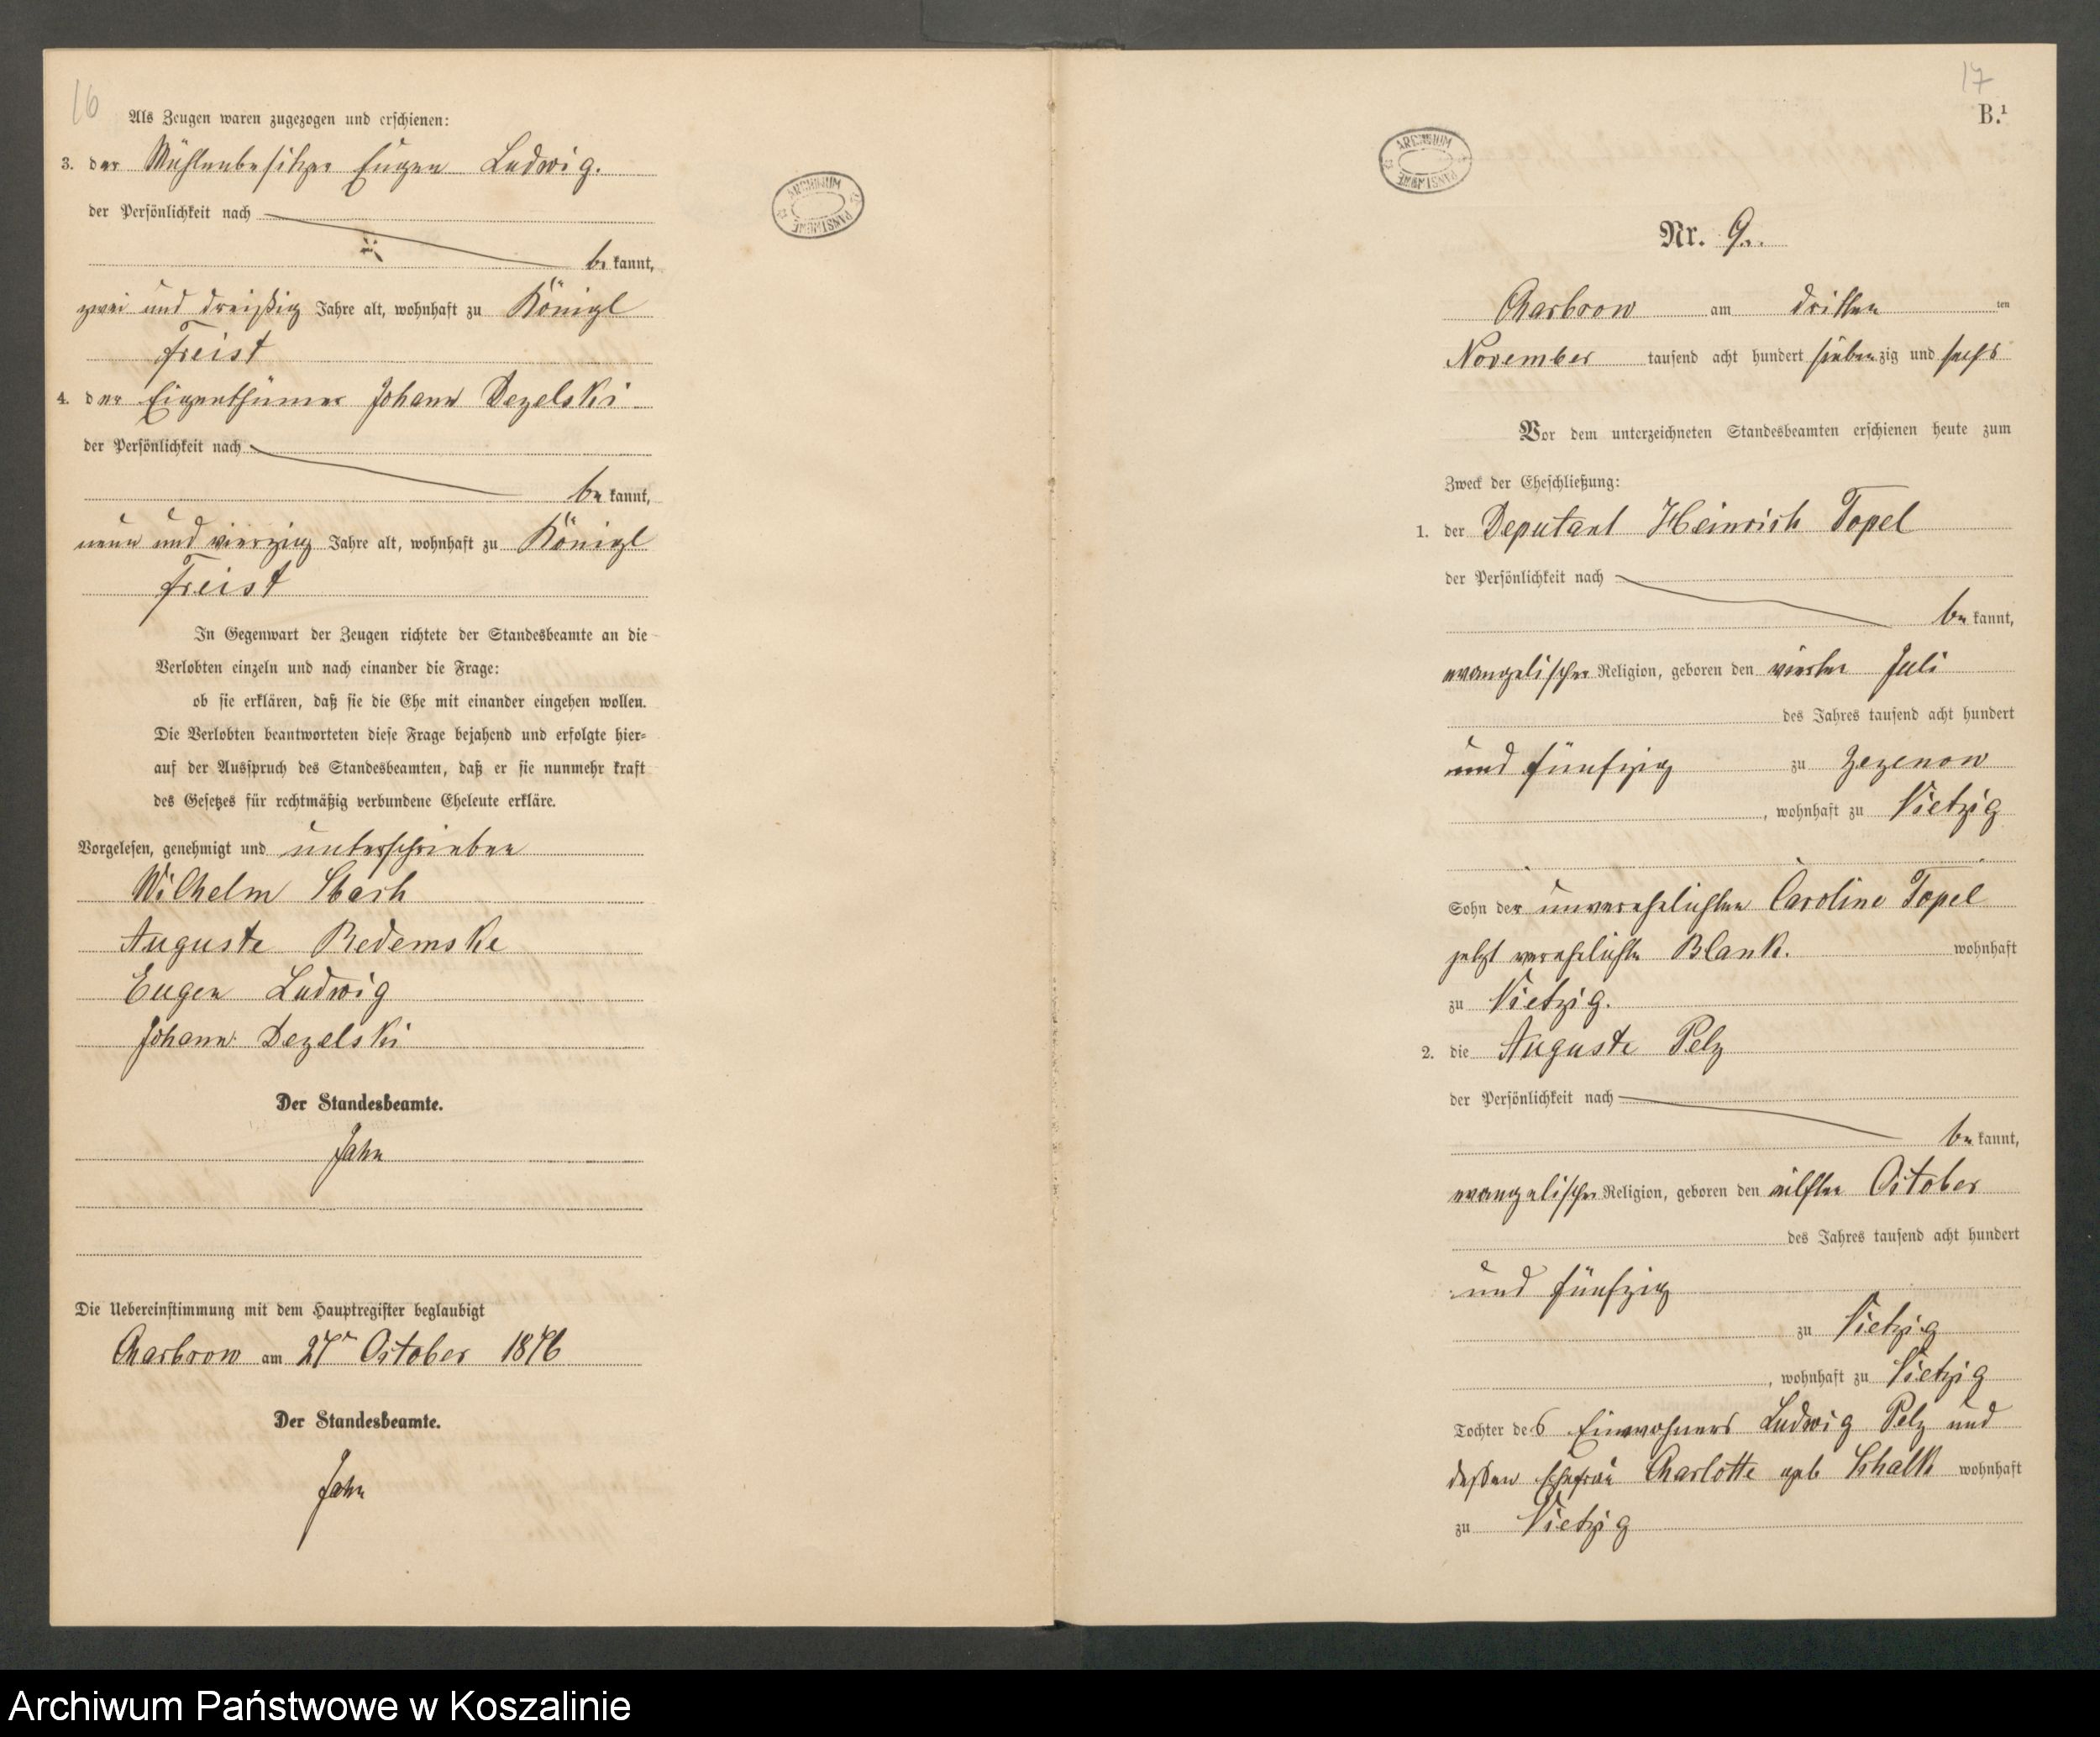 16
Als Zeugen waren zugezogen und erschienen:
3. der Mühlenbesitzer Eugen Ludwig.
der Persönlichkeit nach
be kannt,
zwei und dreißig Jahre alt, wohnhaft zu Königl
Freist
4. der Eigenthümer Johann Dezelski
der Persönlichkeit nach
be kannt,
neun und vierzig Jahre alt, wohnhaft zu Königl
Freist
In Gegenwart der Zeugen richtete der Standesbeamte an die
Verlobten einzeln und nach einander die Frage:
ob sie erklären, daß sie die Ehe mit einander eingehen wollen.
Die Verlobten beantworteten diese Frage bejahend und erfolgte hier=
auf der Ausspruch des Standesbeamten, daß er sie nunmehr kraft
des Gesetzes für rechtmäßig verbundene Eheleute erkläre.
Vorgelesen, genehmigt und unterschrieben
Wilhelm
Auguste Redemske
Eugen Ludwig
Johann Dezelski
Der Standesbeamte.
Jahn
Die Uebereinstimmung mit dem Hauptregister beglaubigt
Charbrow am 27n October 1876
Der Standesbeamte.
Jahn
ARCHIWUM PAŃSTWOWE
17
B.1
ARCHIWUM PAŃSTWOWE
Nr. 9.
Charbrow am dritten ten
November tausend acht hundert siebenzig und sechs
Vor dem unterzeichneten Standesbeamten erschienen heute zum
Zweck der Eheschließung:
1. der Deputant Heinrich Topel
der Persönlichkeit nach
be kannt,
evangelischer Religion, geboren den vierten Juli
des Jahres tausend acht hundert
und fünfzig zu Zezenow
, wohnhaft zu Vietzig
Sohn der unverehelichten Caroline Topel
jetzt verehelichte Blank. wohnhaft
zu Vietzig.
2. die Auguste Pelz
der Persönlichkeit nach
be kannt,
evangelischer Religion, geboren den eilften October
des Jahres tausend acht hundert
und fünfzig
zu Vietzig
, wohnhaft zu Vietzig
Tochter des Einwohners Ludwig Pelz und
deßen Ehefrau Charlotte geb Schalk wohnhaft
zu Vietzig
Archiwum Państwowe w Koszalinie